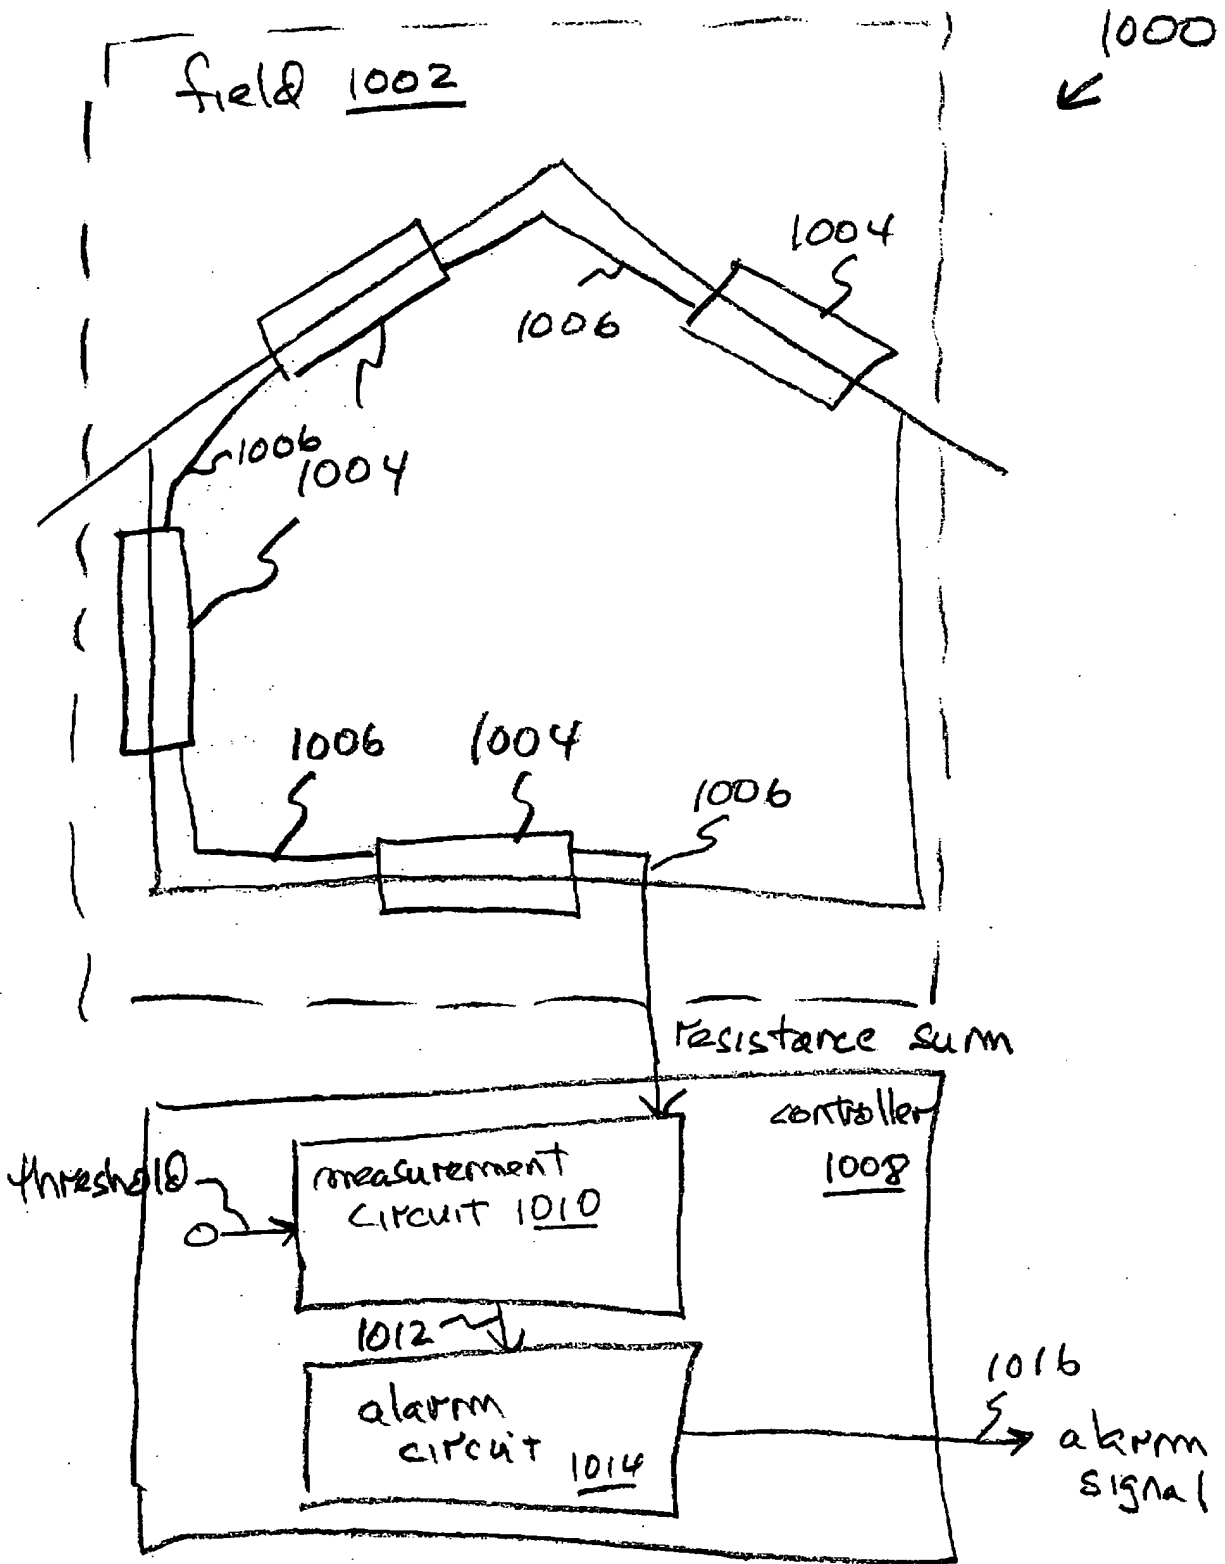 1000
field 1002
1004
1006
1006
1004
1006
1004
1006
resistance sum
controller
1008
threshold
measurement
circuit 1010
1012
alarm
circuit 1014
1016
alarm
signal